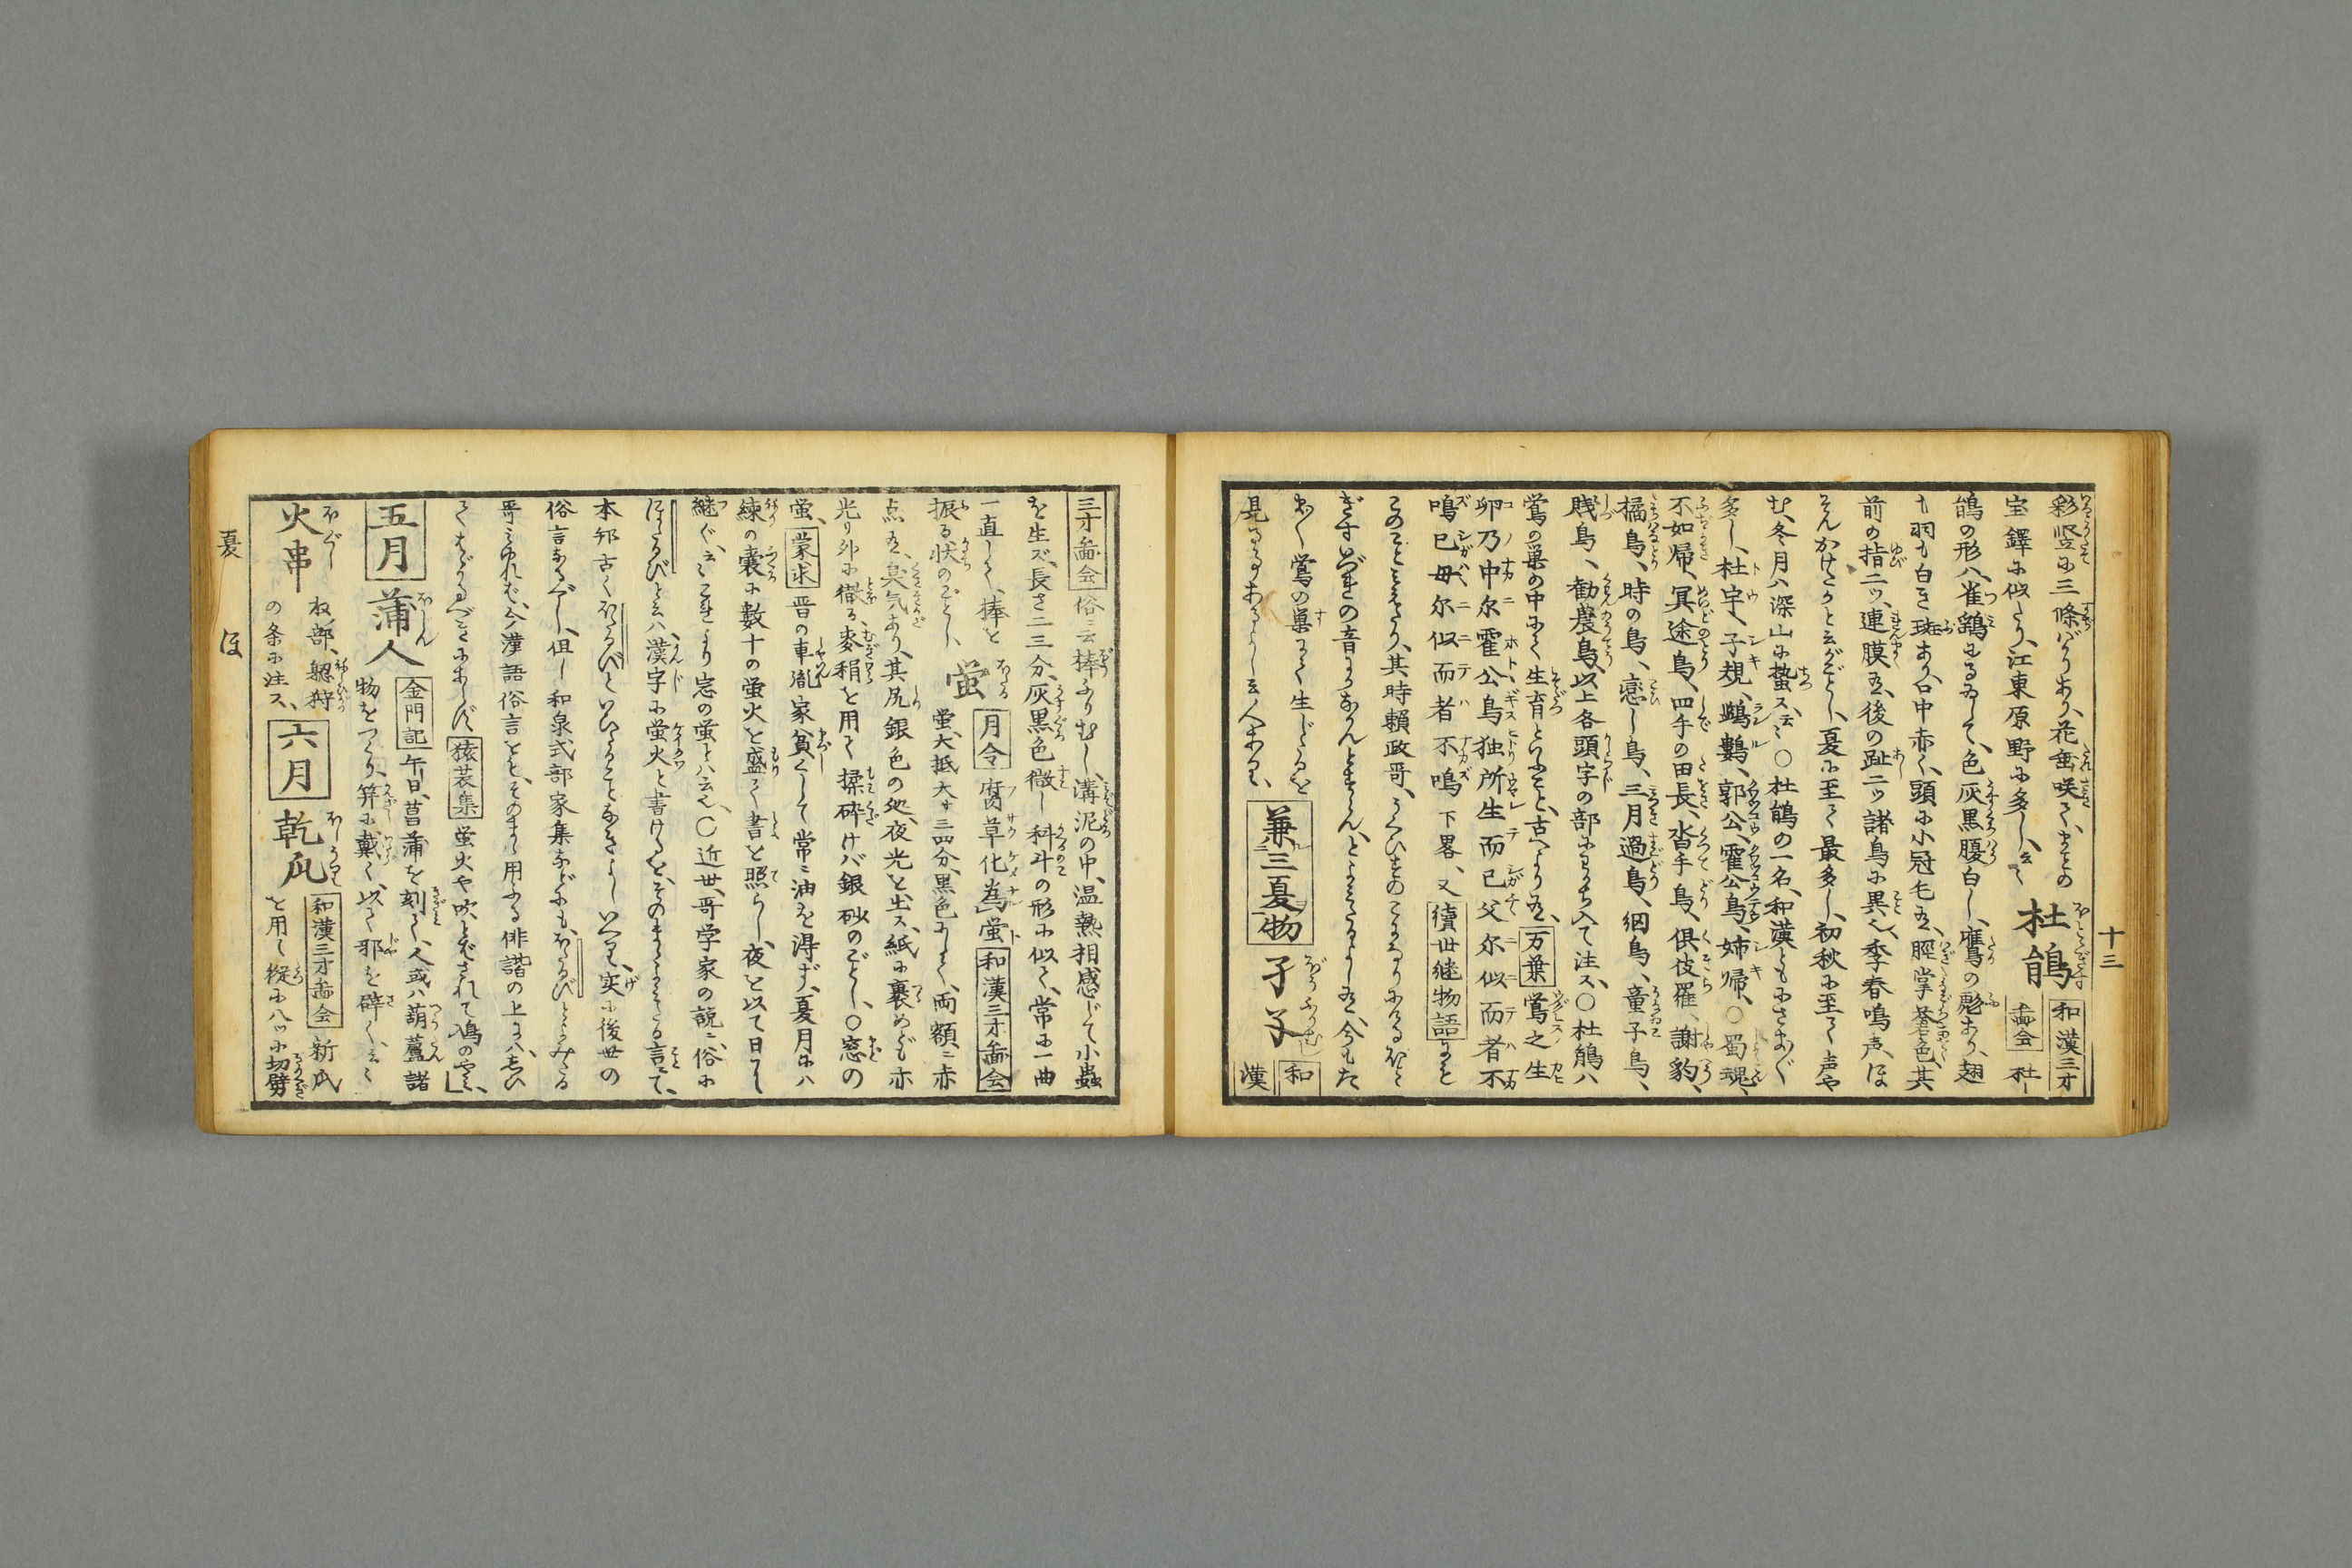 十三
彩竪に三條ばかりあり、花垂咲て、まことの
宝鐸に似たり、江東原野に多し、云云
杜鵑
和漢三才
啚会
杜
鵑の形ハ、雀鷂にゐて、色灰黒、腹白し、鷹の彪あり、翅
も羽も白き斑あり、口中赤く、頭に小冠毛有、脛掌蒼色、其
前の指二ツ、連膜有、後の趾二ツ、諸鳥に異也、季春鳴声、ほ
そんかけたかと云がごとし、夏に至て最多し、初秋に至て声や
む、冬月ハ深山に蟄ス、云云、○杜鵑の一名、和漢ともにさま〲
多し、杜宇、子規、鶗鴂、郭公、霍公鳥、姉帰、○蜀魂、
不如帰、冥途鳥、四手の田長、沓手鳥、倶伎羅、謝豹、
橘鳥、時の鳥、戀し鳥、三月過鳥、綱鳥、童子鳥、
賤鳥、勧農鳥、以上各頭字の部にわかち入て注ス、○杜鵑ハ
鶯の巣の中にて生育といふこと、古へより有、
万葉
鶯之生
卵乃中尓霍公鳥独所生而己父尓似而者不
鳴己母尓似而者不鳴 下畧、又
續世継物語
にも
このことみえたり、其時頼政哥、うぐひすのこになりにけるほとゝ
ぎすいづれの音にかなかんとすらん、とよみたるよし有、今もた
まく鶯の巣にて生じたるを
見たることあるよし云人あり、
兼三夏物
孑孑
和
漢
三才啚会
俗ニ云棒ふりむし、溝泥の中、温熱相感じて小蟲
を生ズ、長さ二三分、灰黒色、微し科斗の形に似て、常に一曲
一直して、棒を
振る状のごとし、
蛍
月令
腐草化為蛍
和漢三才啚会
蛍、大抵大サ三四分、黒色にして、両額ニ赤
点有、臭気あり、其尻銀色の処、夜光を生ス、紙に裹めども亦
光り外に徹る、麥稈を用て揉碎けバ銀砂のごとし、○窓の
蛍、
蒙求
晋の車胤家貧くして常ニ油を得ず、夏月にハ
練の嚢に数十の蛍火を盛て書を照らし、夜を以て日に
継ぐ、云云、これより窓の蛍とハ云也、○近世、哥学家の説ニ、俗に
ほたるびと云ハ、漢字に蛍火と書けるを、そのまゝよみたる言にて、
本邦古くほたるびといひたることなきよしいへり、実に後世の
俗言なるべし、但し和泉式部家集などにも、ほたるびとよみたる
哥ミゆれば、今漢語俗言とも、そのまゝ用ゐる俳諧の上にハ、しひ
てもどるべきにあらず、
猿蓑集
蛍火や吹とばされて鳰のやミ、
五月
蒲人
金門記
午日、菖蒲を刻て、人或ハ葫蘆諸
物をつくり、笄に戴く、以て邪を辟く、云云
火串
ね部、照狩
の条に注ス、
六月
乾瓜
和漢三才啚会
新瓜
を用て縦に八ツに切劈
夏
ほ